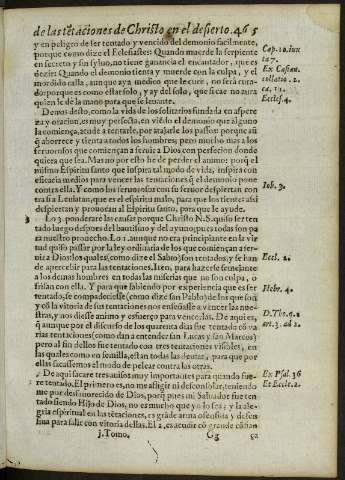 de las tẽtaciones de Christo en el desierto. 465
y en peligro de ser tentado y vencido del demonio facilmente,
porque como dize el Eclesiastes: Quando muerde la serpiente
en secreto y sin syluo, no tiene ganancia el encantador, que es
dezir: Quando el demonio tienta y muerde con la culpa, y el
mordido calla, aunque aya medico que le cure, no serà cura-
do: porque es como estar solo, y ay del solo, que si cae no aura
quien le dè la mano para que se leuante.
Demas desto, como la vida de los solitarios fundada en aspere
za y oracion, es muy perfecta, en viẽdo el demonio que alguno
la comiença, acude a tentarle, por atajarle los passos: porque aũ
q̃ aborrece y tienta a todos los hombres; pero mucho mas a los
feruorosos que comiençan a seruir a Dios con perfecion donde
quiera que sea. Mas no por esto he de perder el animo: porq̃ el
mismo Espiritu santo que inspira tal modo de vida, inspira con
eficacia medios para vencer las tentaciones q̃ el demonio pone
contra ella. Y como los feruorosos con su feruor despiertan con
tra si a Leuiatan, que es el espiritu malo, para que los tiente: assi
despiertan y prouocan al Espiritu santo, para que le ayude.
3 Lo 3. ponderarè las causas porque Christo N. S. quiso ser ten
tado luego despues del bautismo y del ayuno, pues todas son pa
ra nuestro prouecho. Lo 1. aunque no era principiante en la vir
tud quiso passar por la ley ordinaria de los que comiençan a ser-
uir a Dios: los quales (como dize el Sabio) son tentados, y se han
de apercebir para las tentaciones. Iten, para hazerse semejante
a los demas hombres en todas las miserias que no son culpa, o
frisan con ella. Y para que sabiendo por experiencia que es ser
tentado, se compadeciesse (como dize san Pablo) de los que son
y cõ la vitoria de sus tentaciones nos enseñasse a vencer las nue-
stras, y nos diesse animo y esfuerço para vencerlas. De aqui es,
q̃ aunque por el discurso de los quarenta dias fue tentado cõ va
rias tentaciones (como dan a entender san Lucas y san Marcos)
pero al fin dellos fue tentado con tres tentaciones visibles, en
las quales como en semilla, estan todas las demas, para que por
ellas sacassemos el modo de pelear contra las otras.
De aqui sacarè tres auisos muy importantes para quando fue-
re tentado. El primero es, no me afligir ni desconsolar, teniendo
me por desfauorecido de Dios, porq̃ pues mi Saluador fue ten-
tado siendo Hijo de Dios, no es mucho que yo lo sea; y la ale-
gria espiritual en las tẽtaciones, es grãde arma ofensiua y defen
siua para salir con vitoria dellas. El 2. es, acudir cõ grande cõfian
j. Tomo. Gg ça
Cap. 10. iux
ta 7.
Ex Cassian.
collatio. 2.
ca. 11.
Eccles. 4.
Iob. 3.
Eccl. 2.
Hebr. 4.
D. Tho. q. 41
art. 3. ad 2.
Ex Psal. 36
Et Eccle. 2.